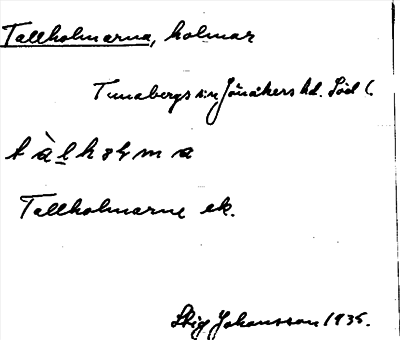 Tallholmarna, holmar
Tunabergs sn, Jönåkers hd. Söd l.
tàlhɔɫma
Tallholmarne ek.
Stig Johansson 1935.